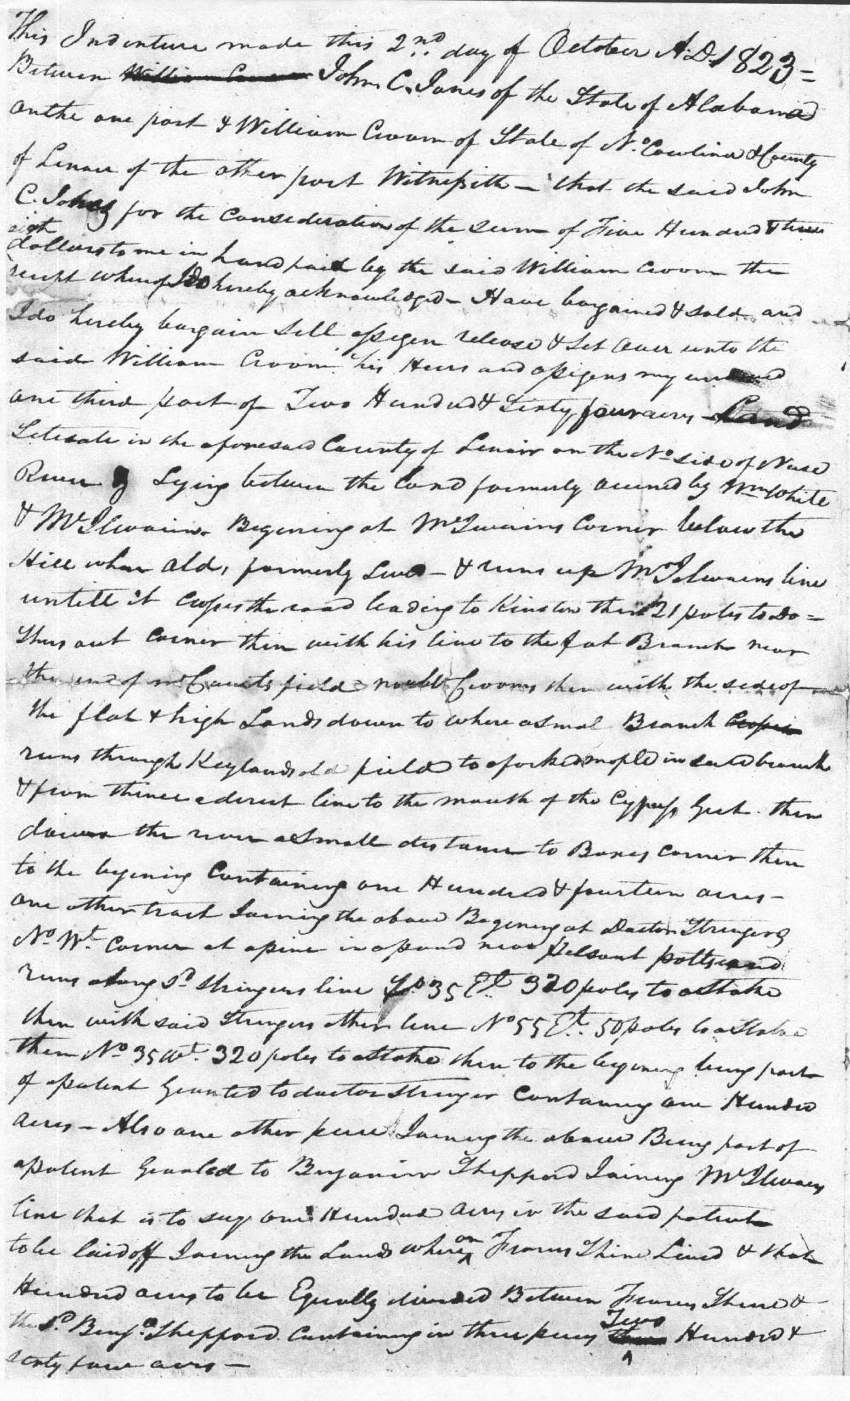 This Indenture made this 2nd day of October A.D. 1823=
Between John C. Jones of the State of Alabama
on the one part & William Croom of State of No. Carolina & County
of Lenoir of the other part Witnesseth — that the said John
C. Jones for the consideration of the sum of Five Hundred & three
eight
dollars to me in hand paid by the said William Croom the
recipt whereof I do hereby acknowledged — Have bargained & sold and
I do hereby bargain Sell assign release & Set over unto the
said William Croom his Heirs and assigens my
one third part of Two Hundred & Sixty four acres Land
Setuate in the aforesaid County of Lenoir on the No side of Nuse
River Lying between the land formerly owned by Wm White
& McIlwain. Begening at McIlwains Corner below the
Hill whar Alds, formerly Lived — & runs up McIlwains line
untill it Crosses the road leading to Kinston then 21 poles to Do=
Thus out Corner then with his line to the flat Branch near
the field Crooms then with the side of
the flat & high Lands down to where a smal Branch
runs through Keylands old field to a forked mople in said branch
& from thince a direct line to the mouth of the Cypress Gut. then
down the river a Small distance to Boneys Corner then
to the begining Containing one Hundred & fourteen acres —
one other tract Joining the above Begening at Doctor Stringers
No. Wt. Corner at a pine in a pond near potts and
runs along sd. Stringers line So 35 Et. 320 poles to a Stake
then with said Stringers other line No 55 Et. 50 poles to a Stake
then No 35 Wt. 320 poles to a Stake then to the begining being part
of a patent Granted to doctor Stringer Containing one Hundred
acres — Also one other peice Joining the above Being part of
a patent Granted to Benjamin Sheppard Joining McIlwains
line that is to say one Hundred acres in the said patent
to be laid off Joining the Lands where on Shine Lived & that
Hundred acres to be Equally divided Between Shine &
the sd. Benja. Sheppard. Containing in three peices Two Hundred &
sixty four acres —